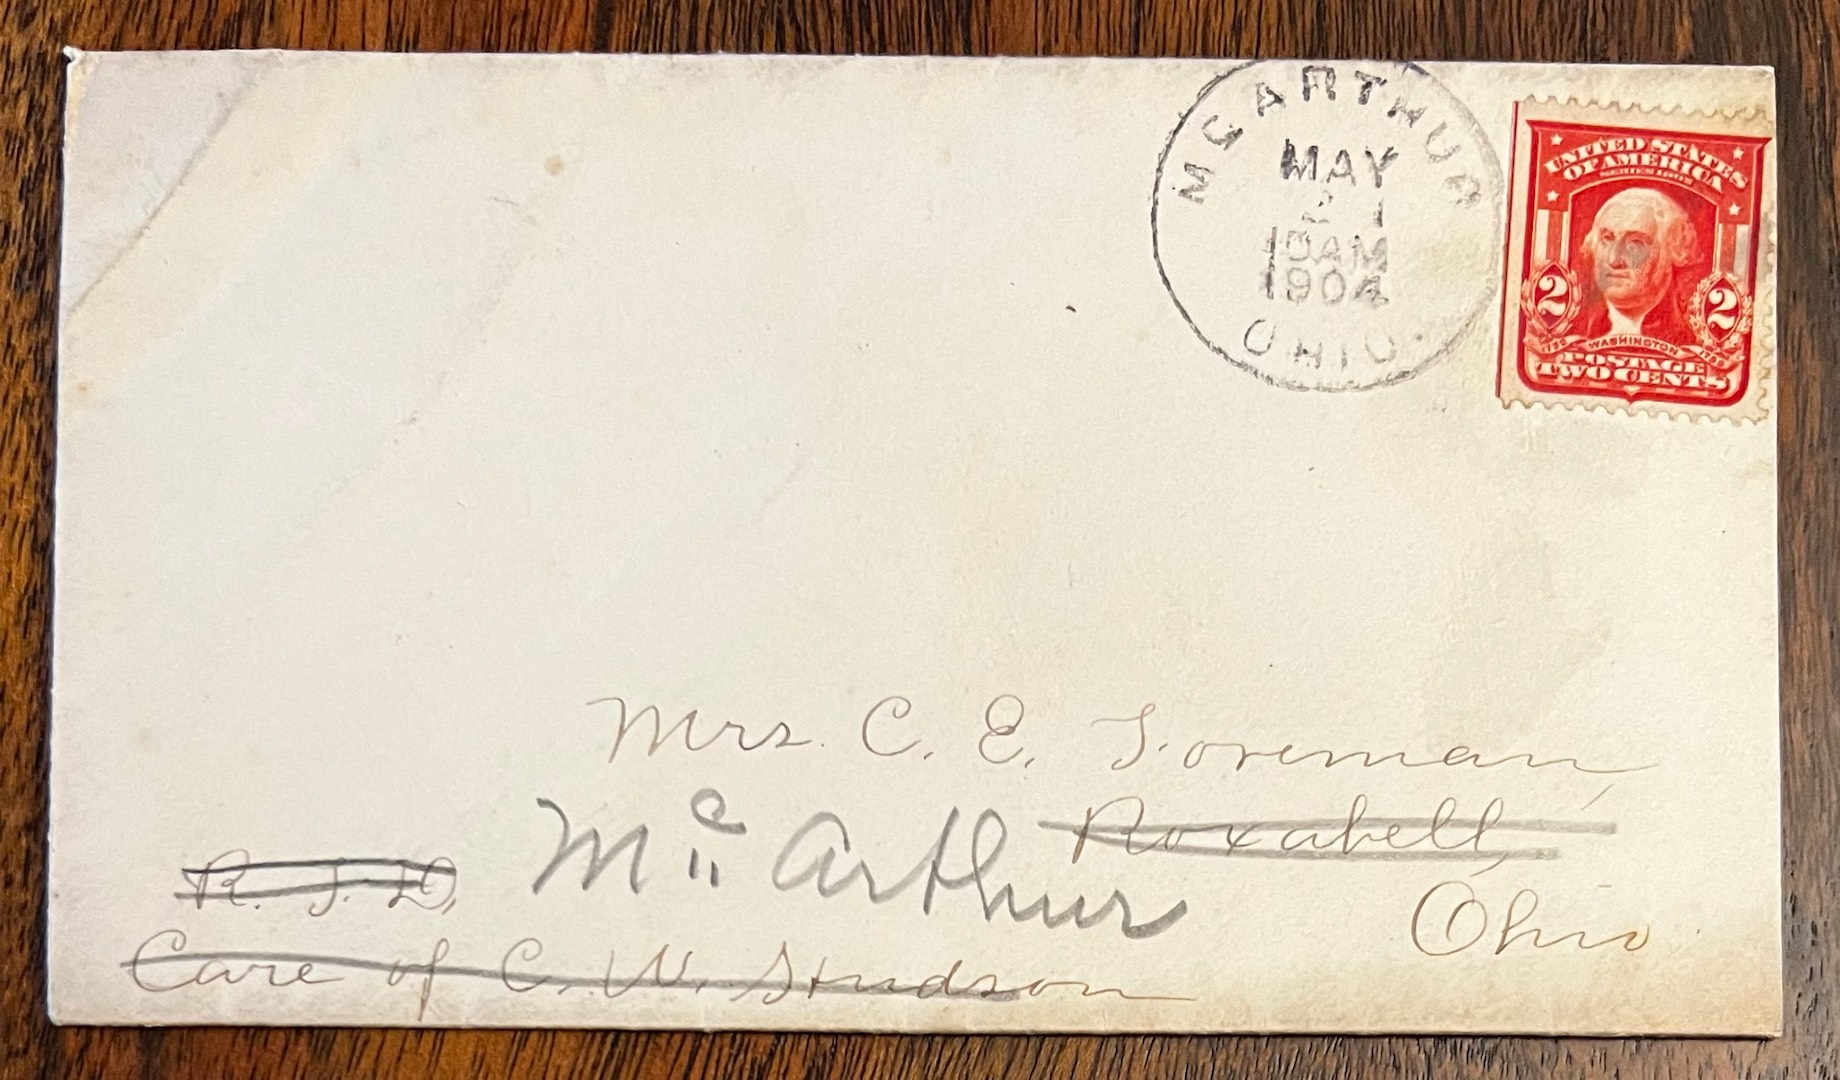 McARTHUR
MAY
21
10AM
1904
OHIO.
UNITED STATES
OF AMERICA
SERIES 1902
2 2
1732 WASHINGTON 1799
POSTAGE
TWO CENTS
Mrs. C. E. Foreman,
Roxabell,
Mc Arthur
Ohio
R. F. D,
Care of C. W. Studson